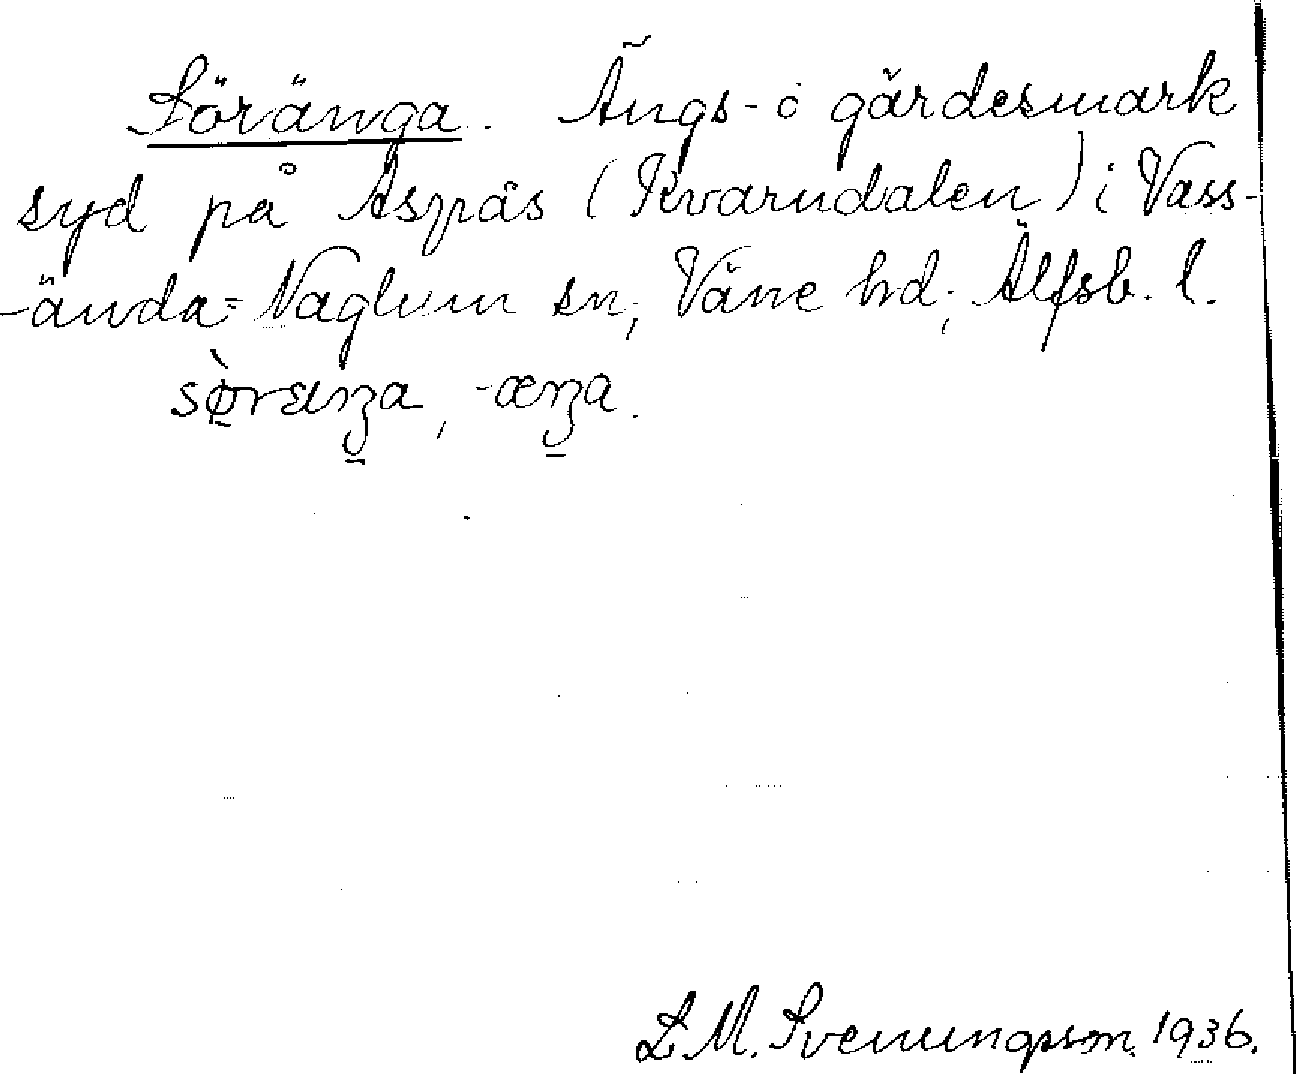 Söränga. Ängs- o gärdesmark
syd på Aspäs (Kvarndalen) i Vass-
-ända-Naglum sn; Väne hd; Älfsb. l.
L M. Svenungsson. 1936.